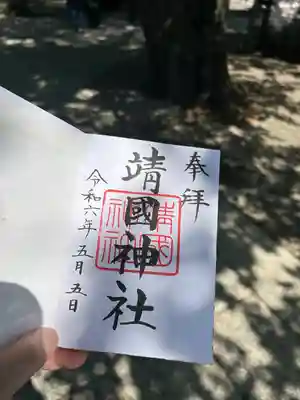 奉拝
靖國神社
令和六年五月五日
靖國神社